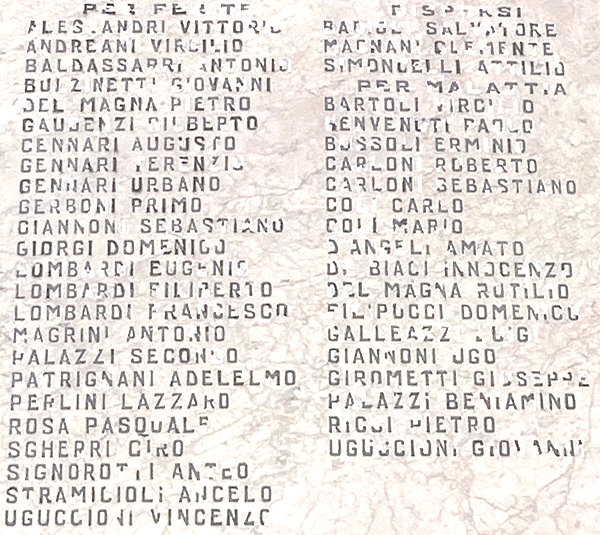 PER FERITE
ALESSANDRI VITTORIO
ANDREANI VIRGILIO
BALDASSARRI ANTONIO
GIOVANNI
DEL MAGNA PIETRO
GAUDENZI GILBERTO
GENNARI AUGUSTO
GENNARI TERENZIO
GENNARI URBANO
GERBONI PRIMO
GIANNONI SEBASTIANO
GIORGI DOMENICO
LOMBARDI EUGENIO
LOMBARDI FILIPERTO
LOMBARDI FRANCESCO
MAGRINI ANTONIO
PALAZZI SECONDO
PATRIGNANI ADELELMO
PERLINI LAZZARO
ROSA PASQUALE
SGHERRI CIRO
SIGNOROTTI ANTEO
STRAMIGIOLI ANGELO
UGUCCIONI VINCENZO
DISPERSI
SALVATORE
MAGNANI CLEMENTE
SIMONCELLI ATTILIO
PER MALATTIA
BARTOLI VIRGILIO
BENVENUTI PAOLO
BUSSOLI ERMINIO
CARLONI ROBERTO
CARLONI SEBASTIANO
COLI CARLO
COLI MARIO
D'ANGELI AMATO
DI BIAGI INNOCENZO
DEL MAGNA RUTILIO
FILIPUCCI DOMENICO
GALLEAZZI LUIGI
GIANNONI UGO
GIROMETTI GIUSEPPE
PALAZZI BENIAMINO
RICCI PIETRO
UGUCCIONI GIOVANNI